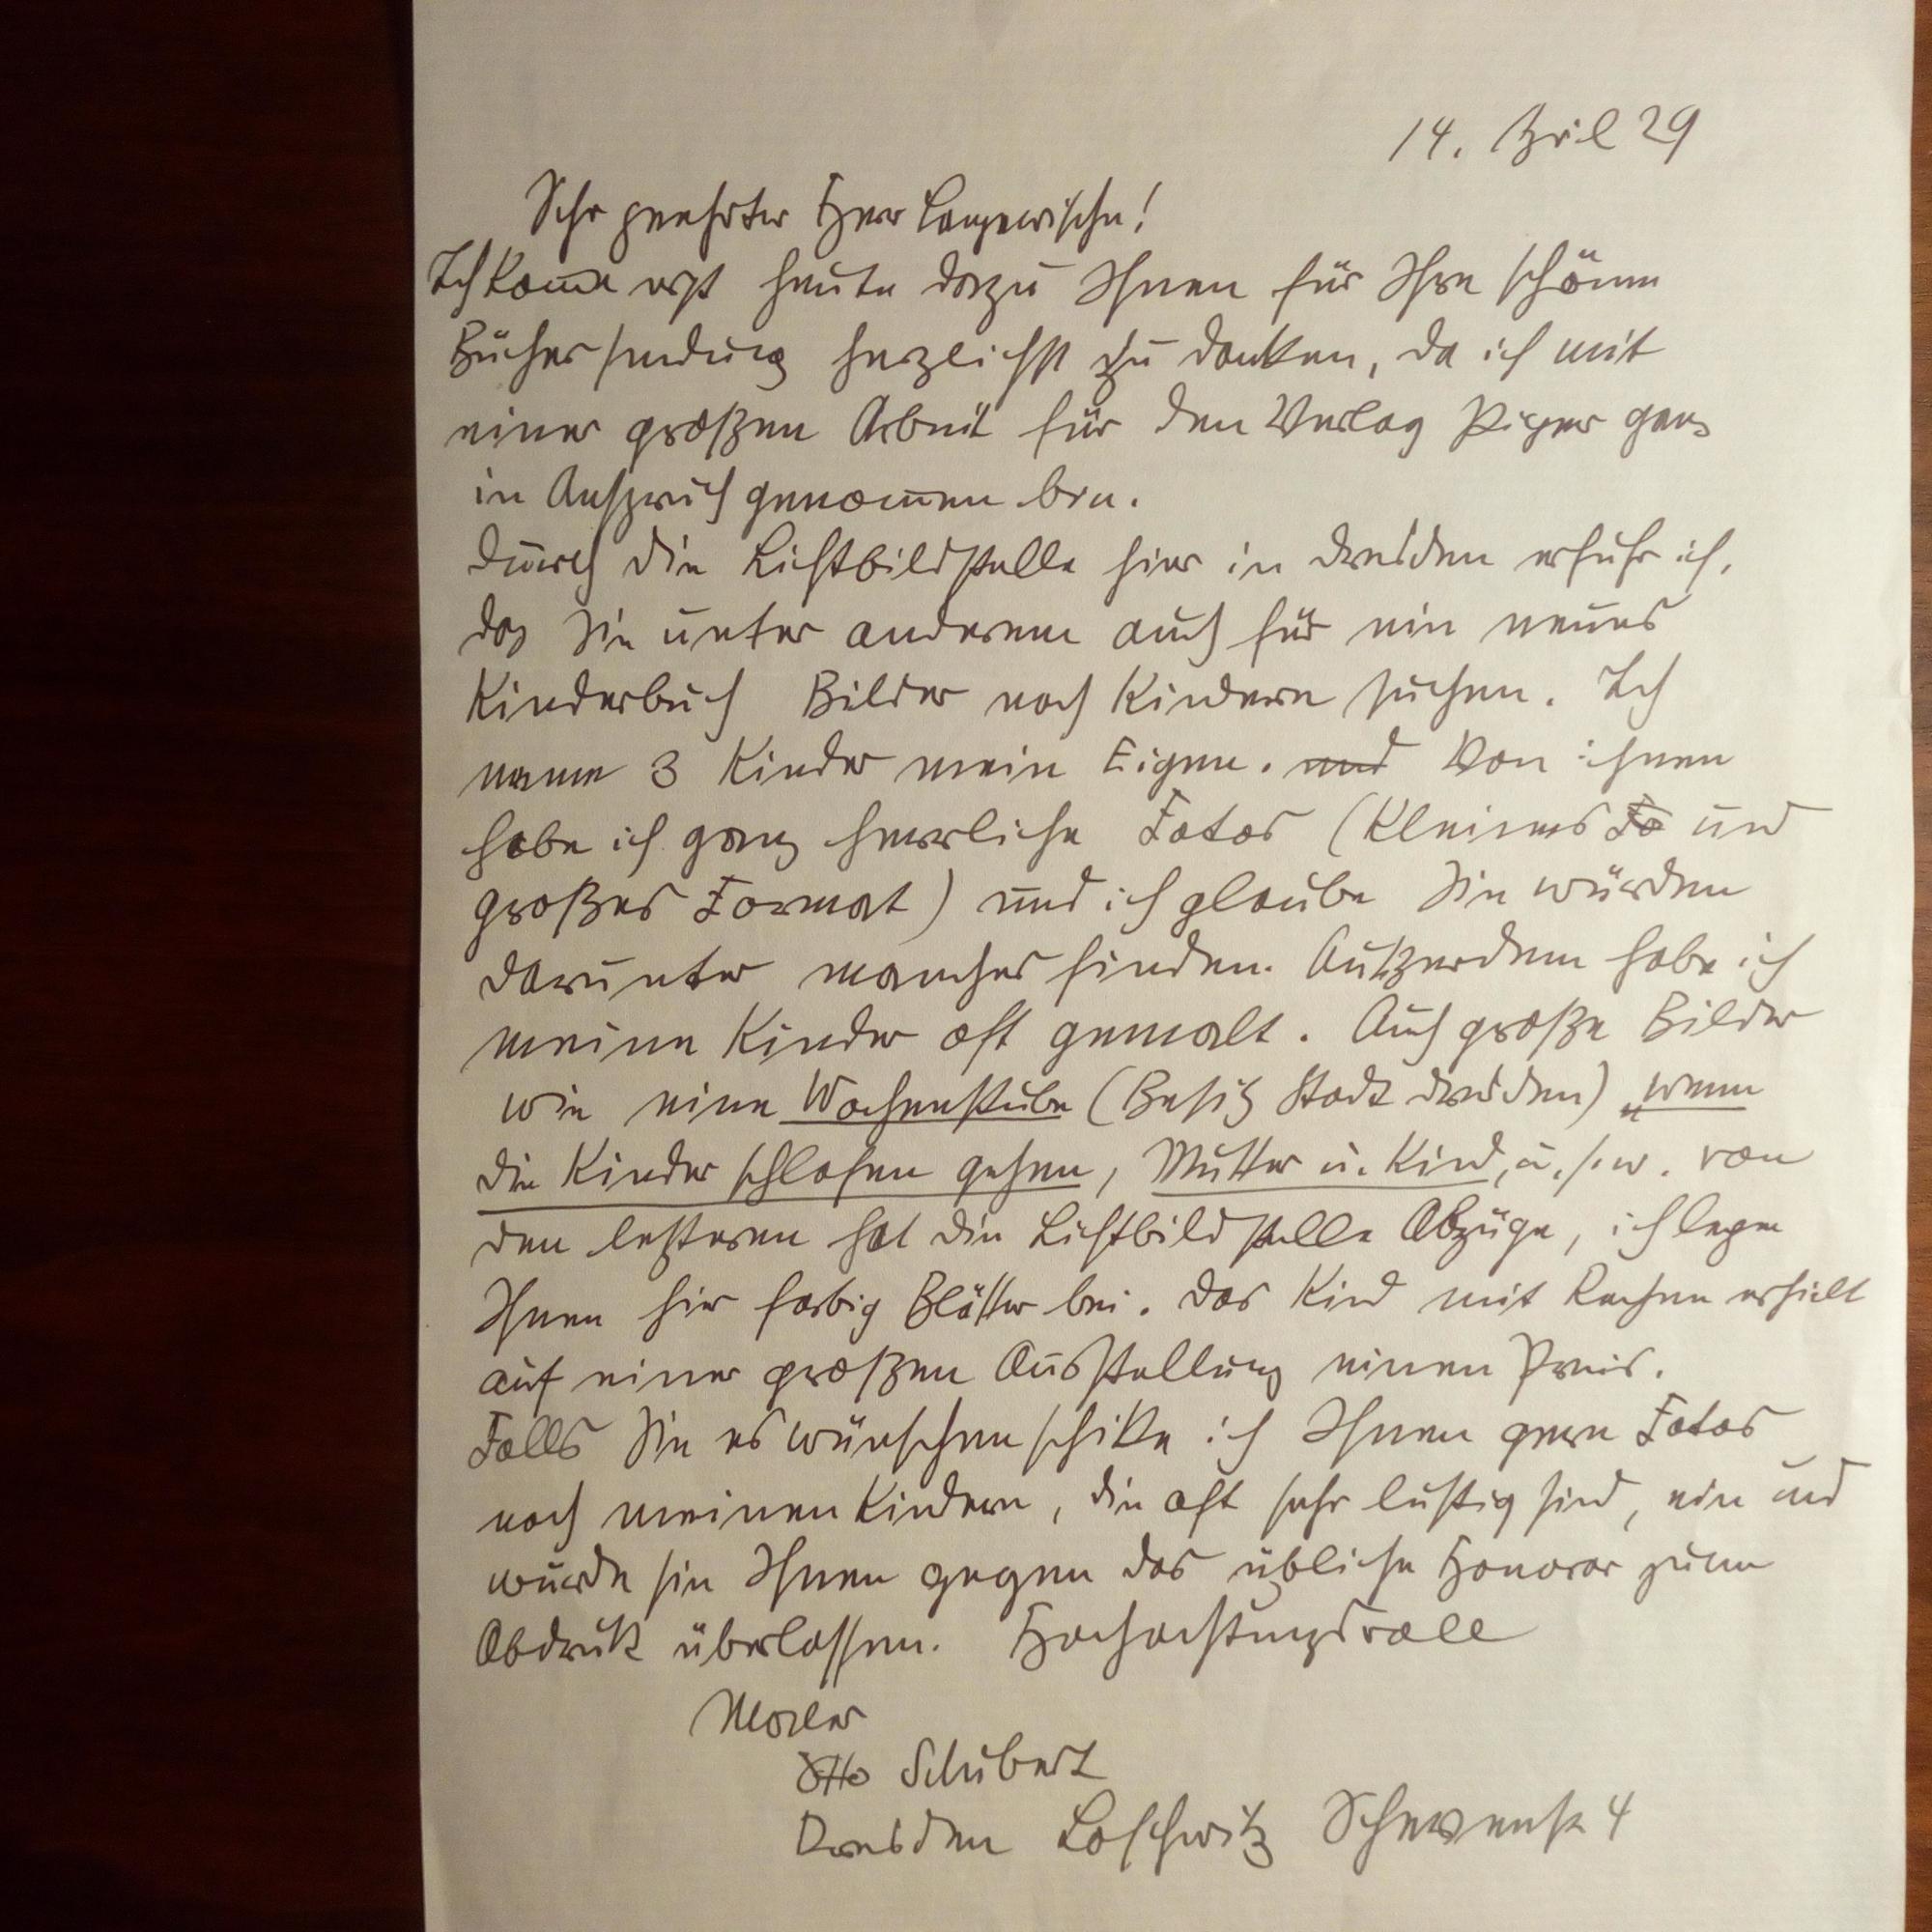 14. April 29
Sehr geehrter Herr Langewische!
Ich kom̅e erst heute dazu Ihnen für Ihre schönen
Büchersendung herzlichst zu danken, da ich mit
einer großen Arbeit für den Verlag Piper ganz
in Anspruch genom̅en bin.
Durch die Lichtbildstelle hier in Dresden erfuhr ich,
das Sie unter anderem auch für ein neues
Kinderbuch Bilder nach Kindern suchen. Ich
nenne 3 Kinder mein Eigen. und Von ihnen
habe ich ganz herrliche Fotos (Kleines Fo und
großes Format) und ich glaube Sie würden
darunter manches finden. Außerdem habe ich
meine Kinder oft gemalt. Auch große Bilder
wie eine Wochenstube (Besitz Stadt Dresden) „wenn
die Kinder schlafen gehen, Mutter u. Kind, u.s.w. von
den letzteren hat die Lichtbildstelle Abzüge, ich lege
Ihnen hier farbig Blätter bei. Das Kind mit Rechen erhielt
auf einer großen Ausstellung einen Preis.
Falls Sie es wünschen schike ich Ihnen gern Fotos
nach meinen Kindern, die oft sehr lustig sind, ein und
würde sie Ihnen gegen das übliche Honorar zum
Abdruk überlassen. Hochachtungsvoll
Maler
Otto Schubert
Dresden Loschwitz 4